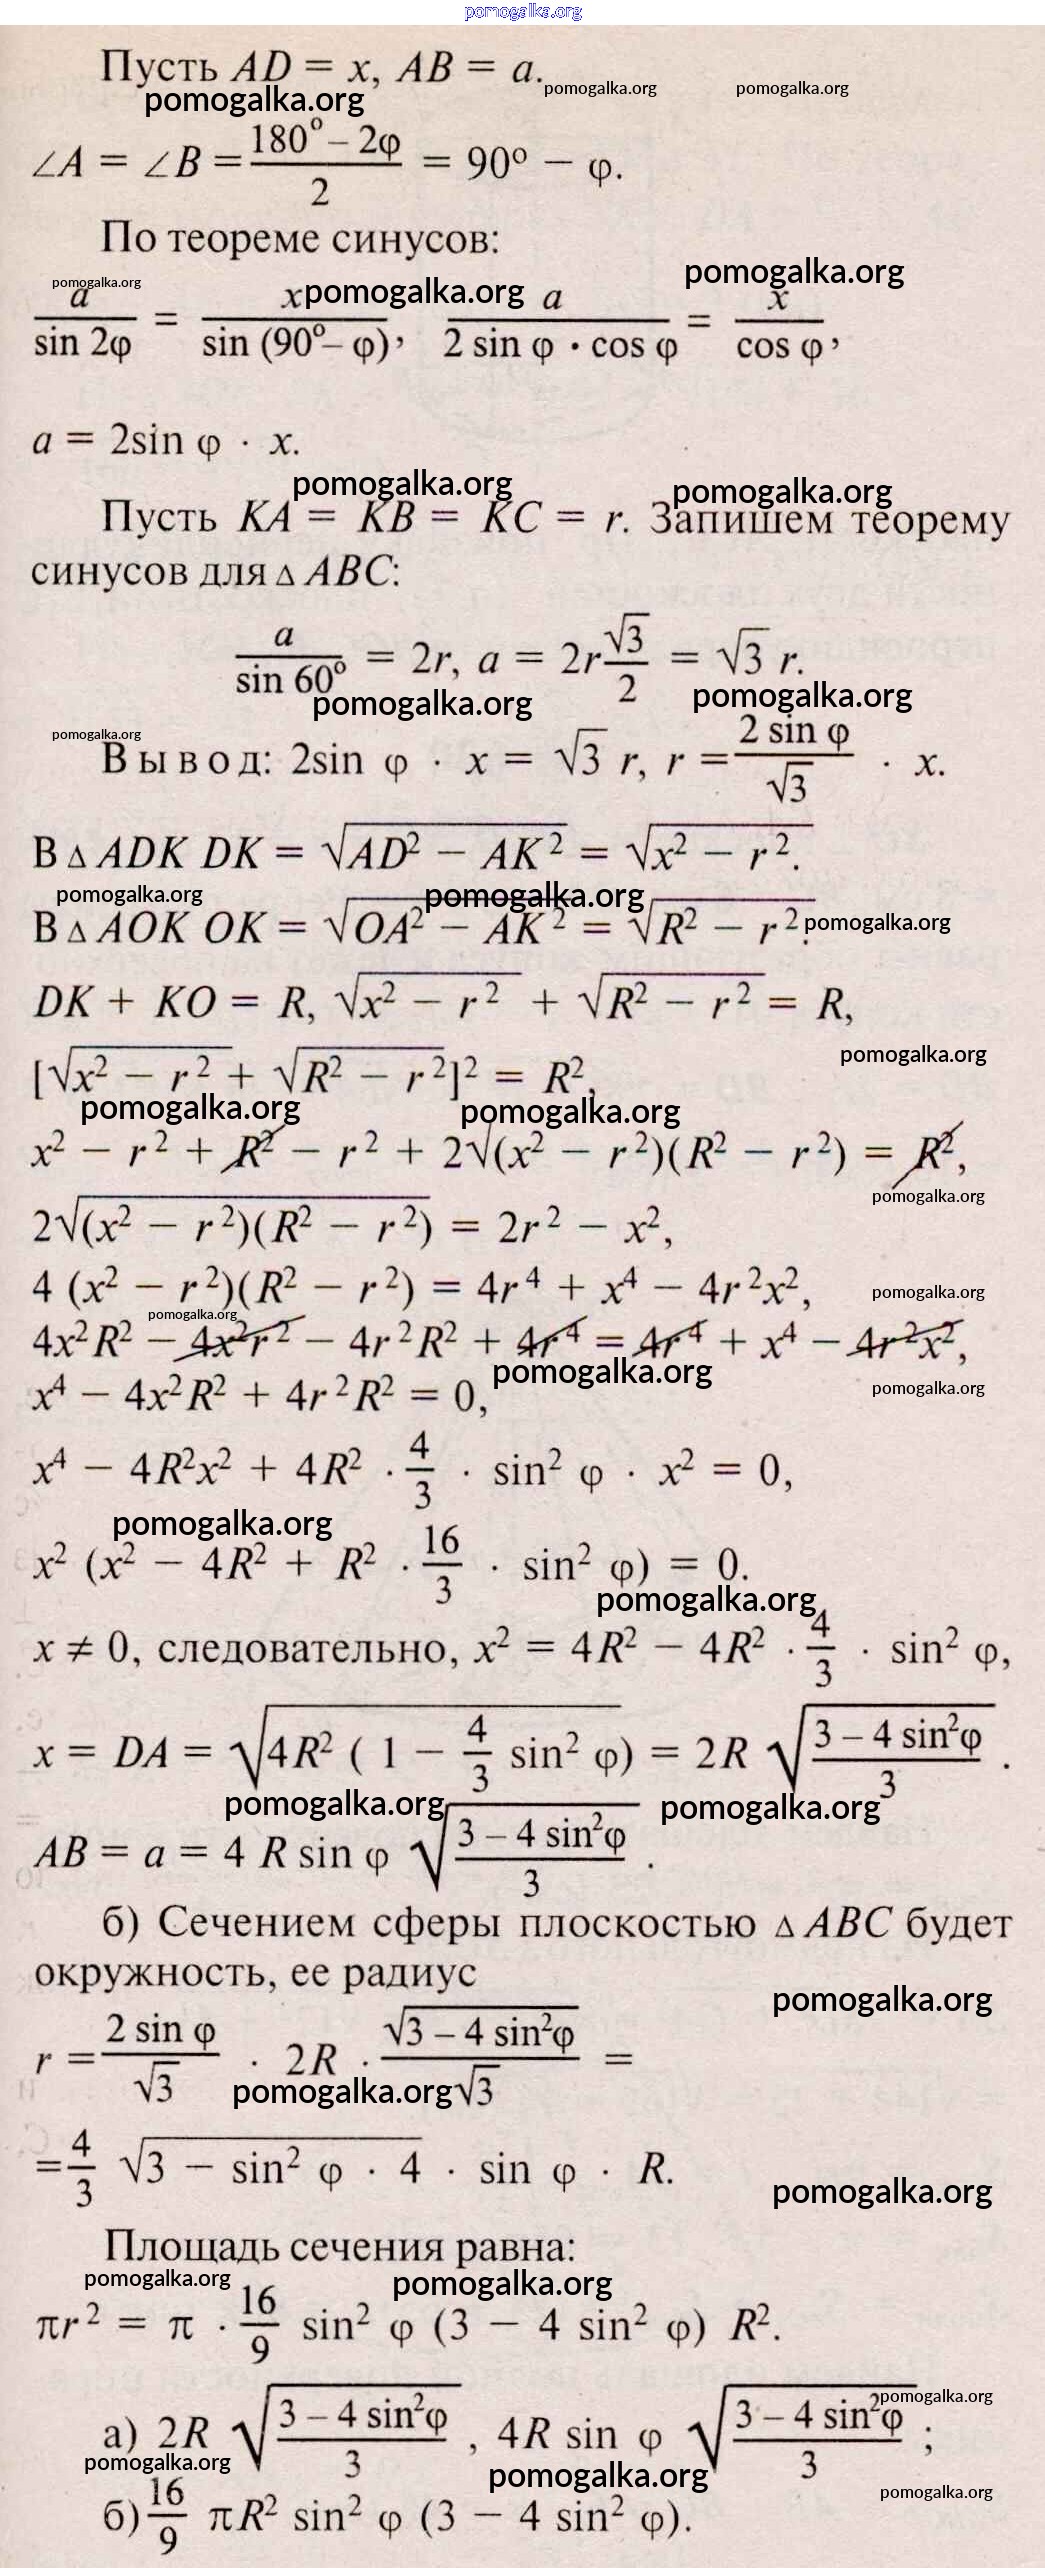 pomogalka.org
Пусть AD = x, AB = a.
pomogalka.org pomogalka.org pomogalka.org
∠A = ∠B = (180° – 2φ)/2 = 90° – φ.
По теореме синусов:
pomogalka.org pomogalka.org pomogalka.org
a/sin 2φ = x/sin (90° – φ), a/(2 sin φ · cos φ) = x/cos φ,
a = 2sin φ · x.
pomogalka.org pomogalka.org
Пусть KA = KB = KC = r. Запишем теорему
синусов для △ ABC:
a/sin 60° = 2r, a = 2r √3/2 = √3 r.
pomogalka.org pomogalka.org
pomogalka.org
Вывод: 2sin φ · x = √3 r, r = (2 sin φ)/√3 · x.
В △ ADK DK = √(AD² – AK²) = √(x² – r²).
pomogalka.org pomogalka.org pomogalka.org
В △ AOK OK = √(OA² – AK²) = √(R² – r²).
DK + KO = R, √(x² – r²) + √(R² – r²) = R,
pomogalka.org
[√(x² – r²) + √(R² – r²)]² = R²,
pomogalka.org pomogalka.org
x² – r² + R² – r² + 2√(x² – r²)(R² – r²) = R²,
pomogalka.org
2√((x² – r²)(R² – r²)) = 2r² – x²,
4 (x² – r²)(R² – r²) = 4r⁴ + x⁴ – 4r²x²,
pomogalka.org
pomogalka.org
4x²R² – 4x²r² – 4r²R² + 4r⁴ = 4r⁴ + x⁴ – 4r²x²,
pomogalka.org pomogalka.org
x⁴ – 4x²R² + 4r²R² = 0,
x⁴ – 4R²x² + 4R² · 4/3 · sin² φ · x² = 0,
pomogalka.org
x² (x² – 4R² + R² · 16/3 · sin² φ) = 0.
pomogalka.org
x ≠ 0, следовательно, x² = 4R² – 4R² · 4/3 · sin² φ,
x = DA = √(4R² (1 – 4/3 sin² φ)) = 2R √((3 – 4 sin²φ)/3).
pomogalka.org pomogalka.org
AB = a = 4 R sin φ √((3 – 4 sin²φ)/3).
б) Сечением сферы плоскостью △ ABC будет
окружность, ее радиус
pomogalka.org
r = (2 sin φ)/√3 · 2R · √(3 – 4 sin²φ)/√3 =
pomogalka.org
= 4/3 √(3 – sin² φ · 4) · sin φ · R.
pomogalka.org
Площадь сечения равна:
pomogalka.org pomogalka.org
πr² = π · 16/9 sin² φ (3 – 4 sin² φ) R².
pomogalka.org
а) 2R √((3 – 4 sin²φ)/3), 4R sin φ √((3 – 4 sin²φ)/3);
pomogalka.org pomogalka.org pomogalka.org
б) 16/9 πR² sin² φ (3 – 4 sin² φ).